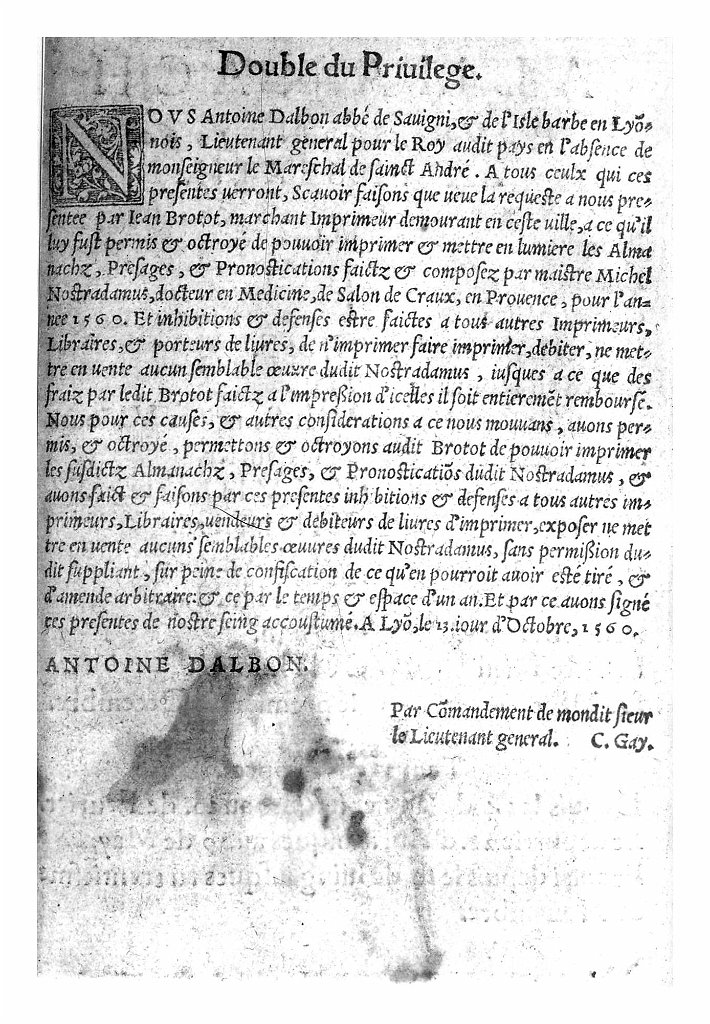 Double du Priuilege.
NOVS Antoine Dalbon abbé de Sauigni, & de l'Isle barbe en Lyõ-
nois, Lieutenant general pour le Roy audit pays en l'absence de
monseigneur le Mareschal de sainct André. A tous ceulx qui ces
presentes verront, Scauoir faisons que veue la requeste a nous pre-
sentee par Iean Brotot, marchant Imprimeur demourant en ceste ville, a ce qu'il
luy fust permis & octroyé de pouuoir imprimer & mettre en lumiere les Alma
nachz, Presages, & Pronostications faictz & composez par maistre Michel
Nostradamus, docteur en Medicine, de Salon de Craux, en Prouence, pour l'an-
nee 1560. Et inhibitions & defenses estre faictes a tous autres Imprimeurs,
Libraires, & porteurs de liures, de n'imprimer faire imprimer, debiter, ne met-
tre en vente aucun semblable œuure dudit Nostradamus, iusques a ce que des
fraiz par ledit Brotot faictz a l'impreßion d'icelles il soit entieremẽt remboursé.
Nous pour ces causes, & autres considerations a ce nous mouuans, auons per-
mis, & octroyé, permettons & octroyons audit Brotot de pouuoir imprimer
les susdictz Almanachz, Presages, & Pronosticatiõs dudit Nostradamus, &
auons faict & faisons par ces presentes inhibitions & defenses a tous autres im-
primeurs, Libraires, vendeurs & debiteurs de liures d'imprimer, exposer ne met
tre en vente aucuns semblables œuures dudit Nostradamus, sans permißion du-
dit suppliant, sur peine de confiscation de ce qu'en pourroit auoir esté tiré, &
d'amende arbitraire: & ce par le temps & espace d'un an. Et par ce auons signé
ces presentes de nostre seing accoustumé. A Lyõ, le 13. iour d'Octobre, 1560.
ANTOINE DALBON.
Par Cõmandement de mondit sieur
le Lieutenant general. C. Gay.